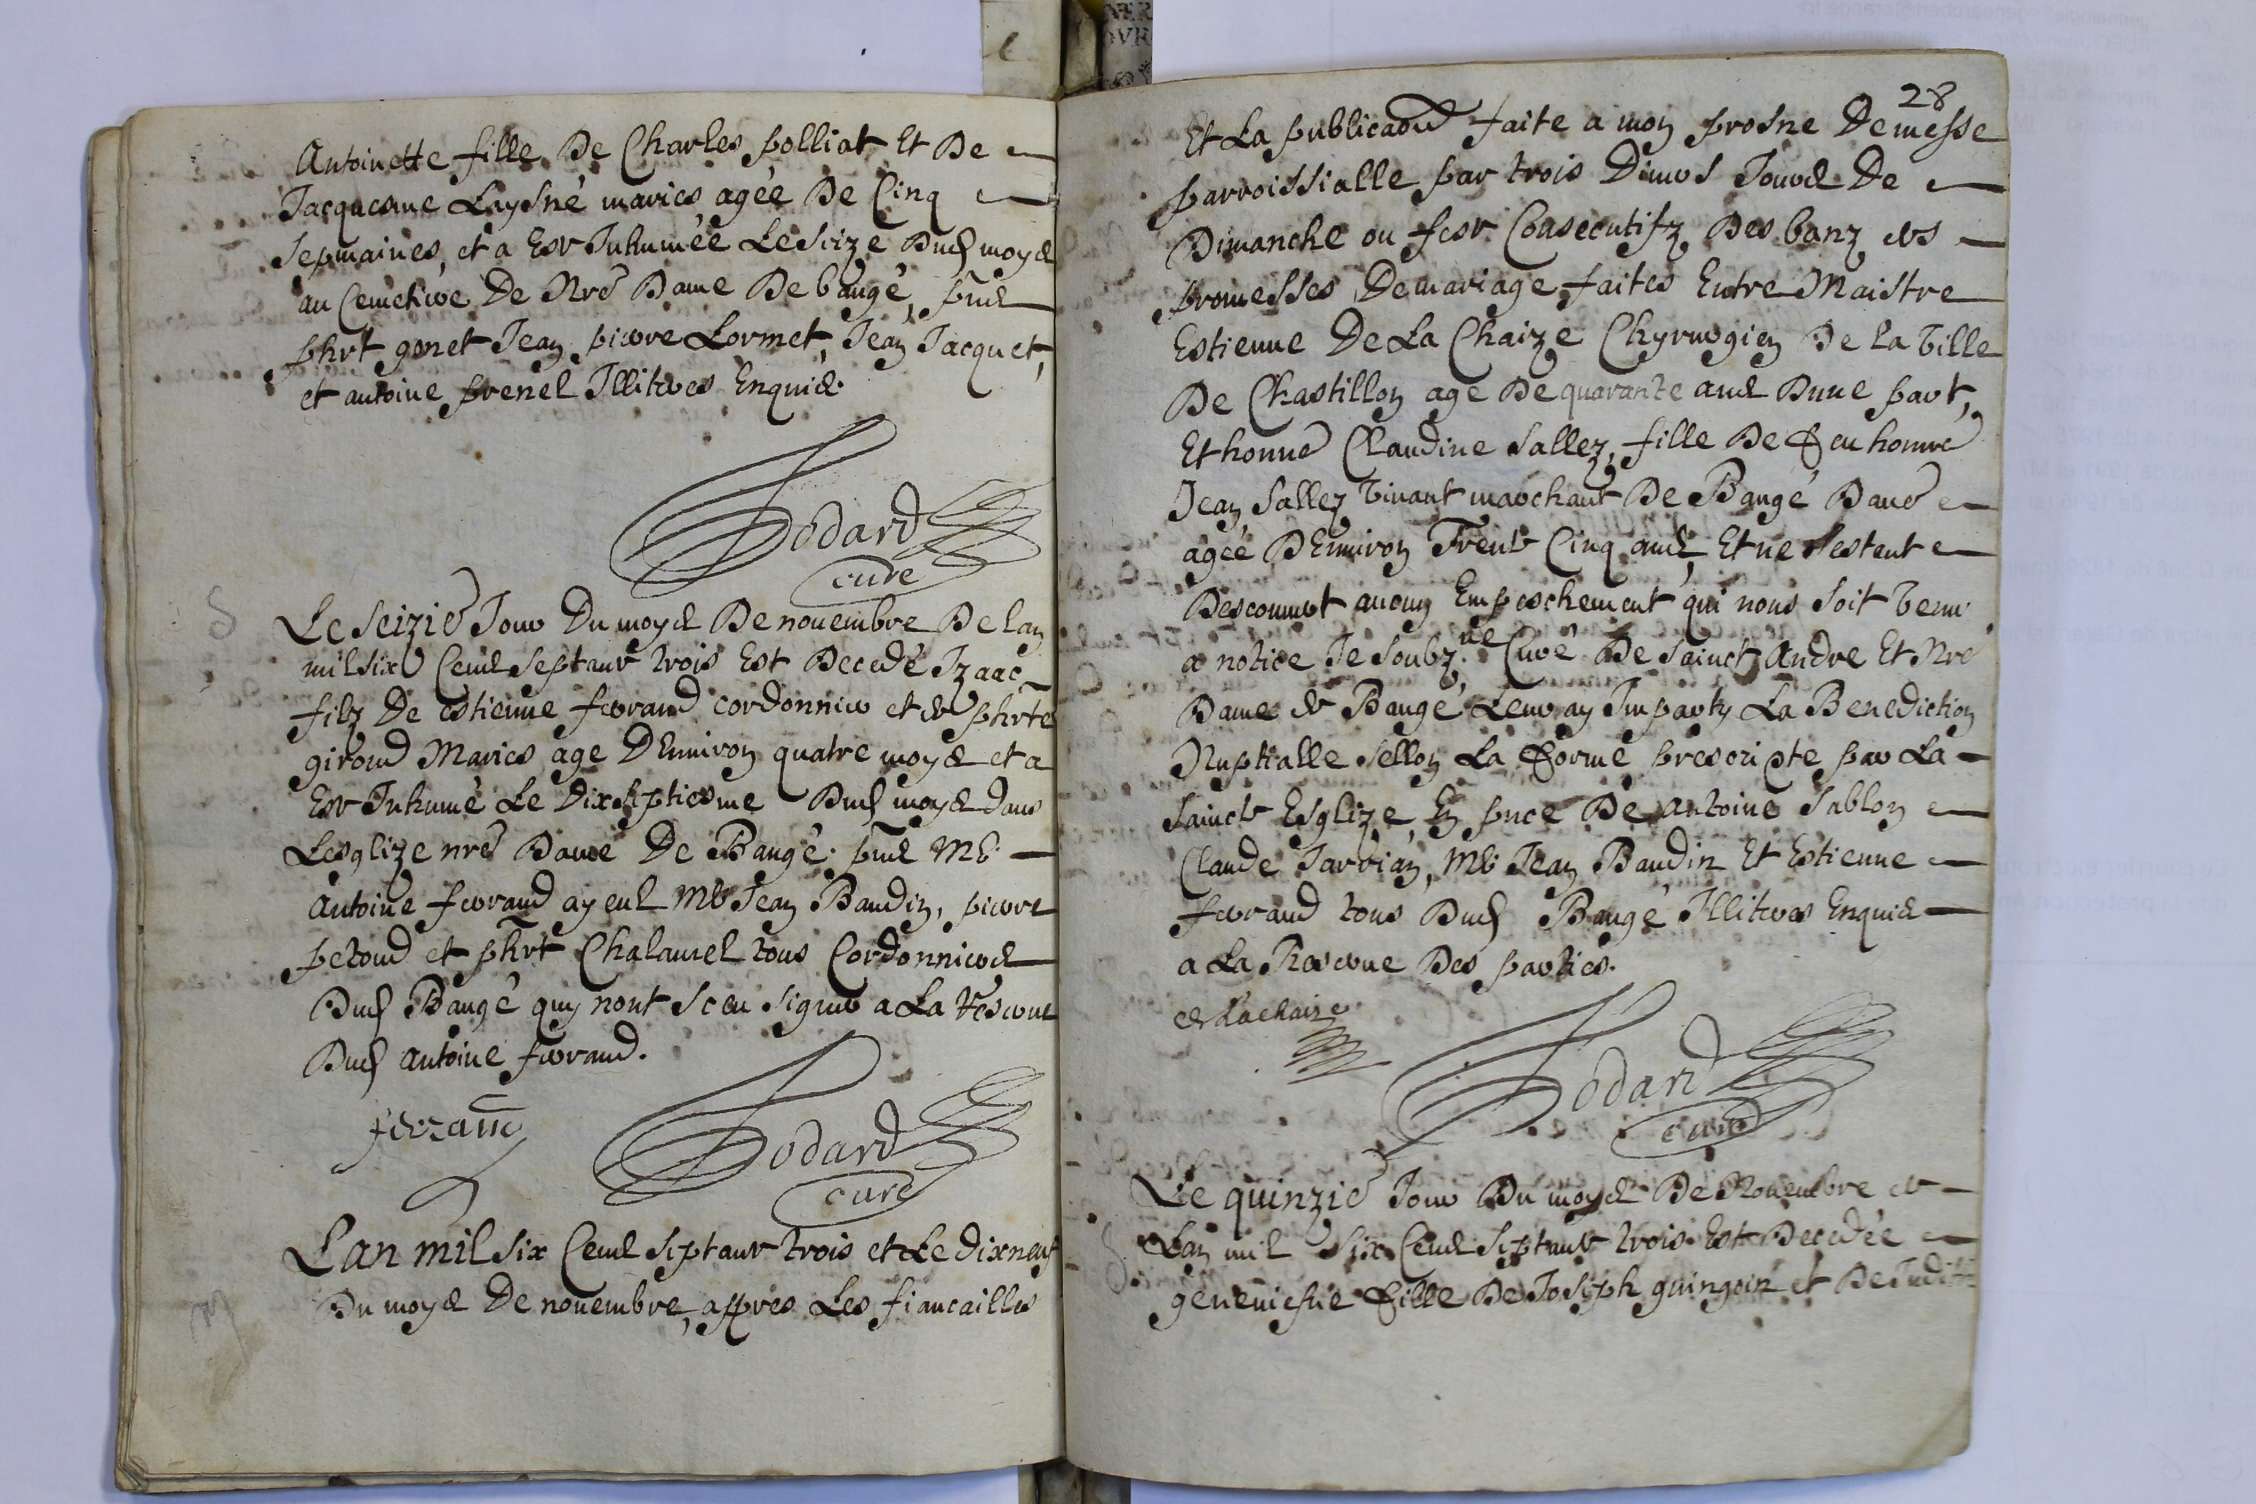 Antoinette fille De Charles polliat Et De
Jacquesme Laysné mariés agée De Cinq
sepmaines, et a Este Inhumée Le seize Dud moys
au Cemetiere De Nre Dame De baugé, pnts
phrt gonet Jean pierre Lormet, Jean Jacquet,
et antoine prenel Illiteres Enquis.
Godard
curé
Le seizie Jour Du moys De novembre De lan
mil six Cents septante trois Est Decedé Izaac
filz De estienne ferrand cordonnier et de phrte
giroud Mariés age D'Environ quatre moys et a
Este Inhumé Le Dix septiesme Dud moys dans
Lesglize nre Dame De Baugé. pnts Me
Antoine ferrand ayeul Me Jean Baudin, pierre
petoud et phrt Chalamel tous Cordonniers
Dud Baugé quy nont sceu signer a La reserve
Dud antoine ferrand.
ferrand
Godard
curé
Lan mil six Cents septante trois et Le dixneuf
Du moys De novembre, appres Les fiancailles
28
Et La publicaon faite a mon prosne De messe
parroissialle par trois Divers Jours De
Dimanche ou feste Consecutifz Des banz des
promesses De mariage faites Entre Maistre
Estienne De La Chaize Chyrurgien De la Ville
De Chastillon age De quarante ans Dune part,
Et honne Claudine Sallez, fille De feu honnre
Jean Sallez vivant marchant De Baugé Dautre
agée D'Environ Trente Cinq ans, Et ne s'estent
Descouvert aucun Empeschement qui nous soit venu
a notice Je soubz.né Curé De Sainct Andre Et Nre
Dame de Baugé Leur ay Imparty La Benediction
Nuptialle sellon La forme prescripte par La
saincte Esglize, En pnce De antoine Sablon
Claude Jarvian, Me Jean Baudin Et Estienne
ferrand tous Dud Baugé Illiteres Enquis
a La Reserve Des parties.
de Lachaize
Godard
curé
Le quinzie Jour Du moys De Novembre de
Lan mil six Cents septante trois Est Decedée
geneviefve fille De Joseph guingoin et De Judith